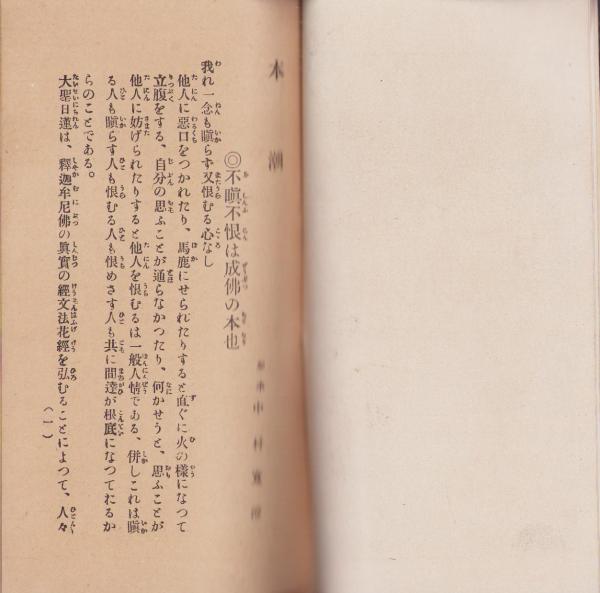 本潮
◎不瞋不恨は成佛の本也
中村
我れ一念も瞋らず又恨むる心なし
他人に惡口をつかれたり、馬鹿にせられたりすると直ぐに火の樣になつて
立腹をする、自分の思ふことが通らなかつたり、何かせうと、思ふことが
他人に妨げられたりすると他人を恨むるは一般人情である、併しこれは瞋
る人も瞋らす人も恨むる人も恨めさす人も共に間違が根底になつてたるか
らのことである。
大聖日蓮は、釋迦牟尼佛の眞實の經文法花經を弘むることによつて、人々
(一)